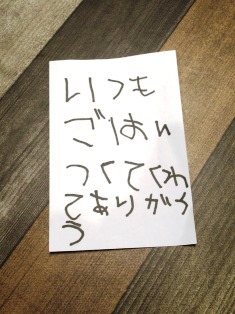 いつも
ごはん
つくてくわ
てありがく
う